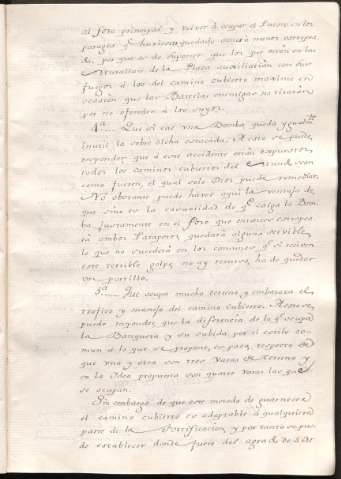 al foso principal y volver á ocupar el puesto en los
parages q.e huviesen quedado con menos estrope
do, por que es de suponer que los que estan en las
Murallas de la Plaza auxiliarán con sus
fuegos á los del camino cubierto maxime en
ocasion que las Baterias enemigas no tirarán
por no ofender á los suyos.
4.a Que si cae una Bomba queda ygualm.te
inutil la sobre dicha estacada. A esto se puede
responder que á este accidente están expuestos
todos los caminos cubiertos del Mundo sean
como fuesen, el qual solo Dios puede remediar.
No obstante puede haver aqui la ventaja de
que sino es la casualidad de q.e caiga la Bom
ba justamente en el foso que entonces estropea
rá ambos Parapetos, quedará alguno servible,
lo que no sucederá en los comunes q.e si reciven
este terrible golpe no ay recurso, ha de quedar
un portillo.
5.a Que ocupa mucho terreno, y embaraza el
trafico y manejo del camino cubierto. A esto se
puede responder que la diferencia de lo q.e ocupa
la Banqueta y su subida por el estilo co-
mun á lo que se propone, es poca, respecto de
que una y otra son tres Varas de terreno y
en la Idea propuesta son quatro varas las que
se ocupan.
Sin embargo de que este metodo de guarnecer
el camino cubierto es adaptable á qualquiera
parte de la Fortificacion, y por tanto se pue
de establecer donde fuere del agrado de S.